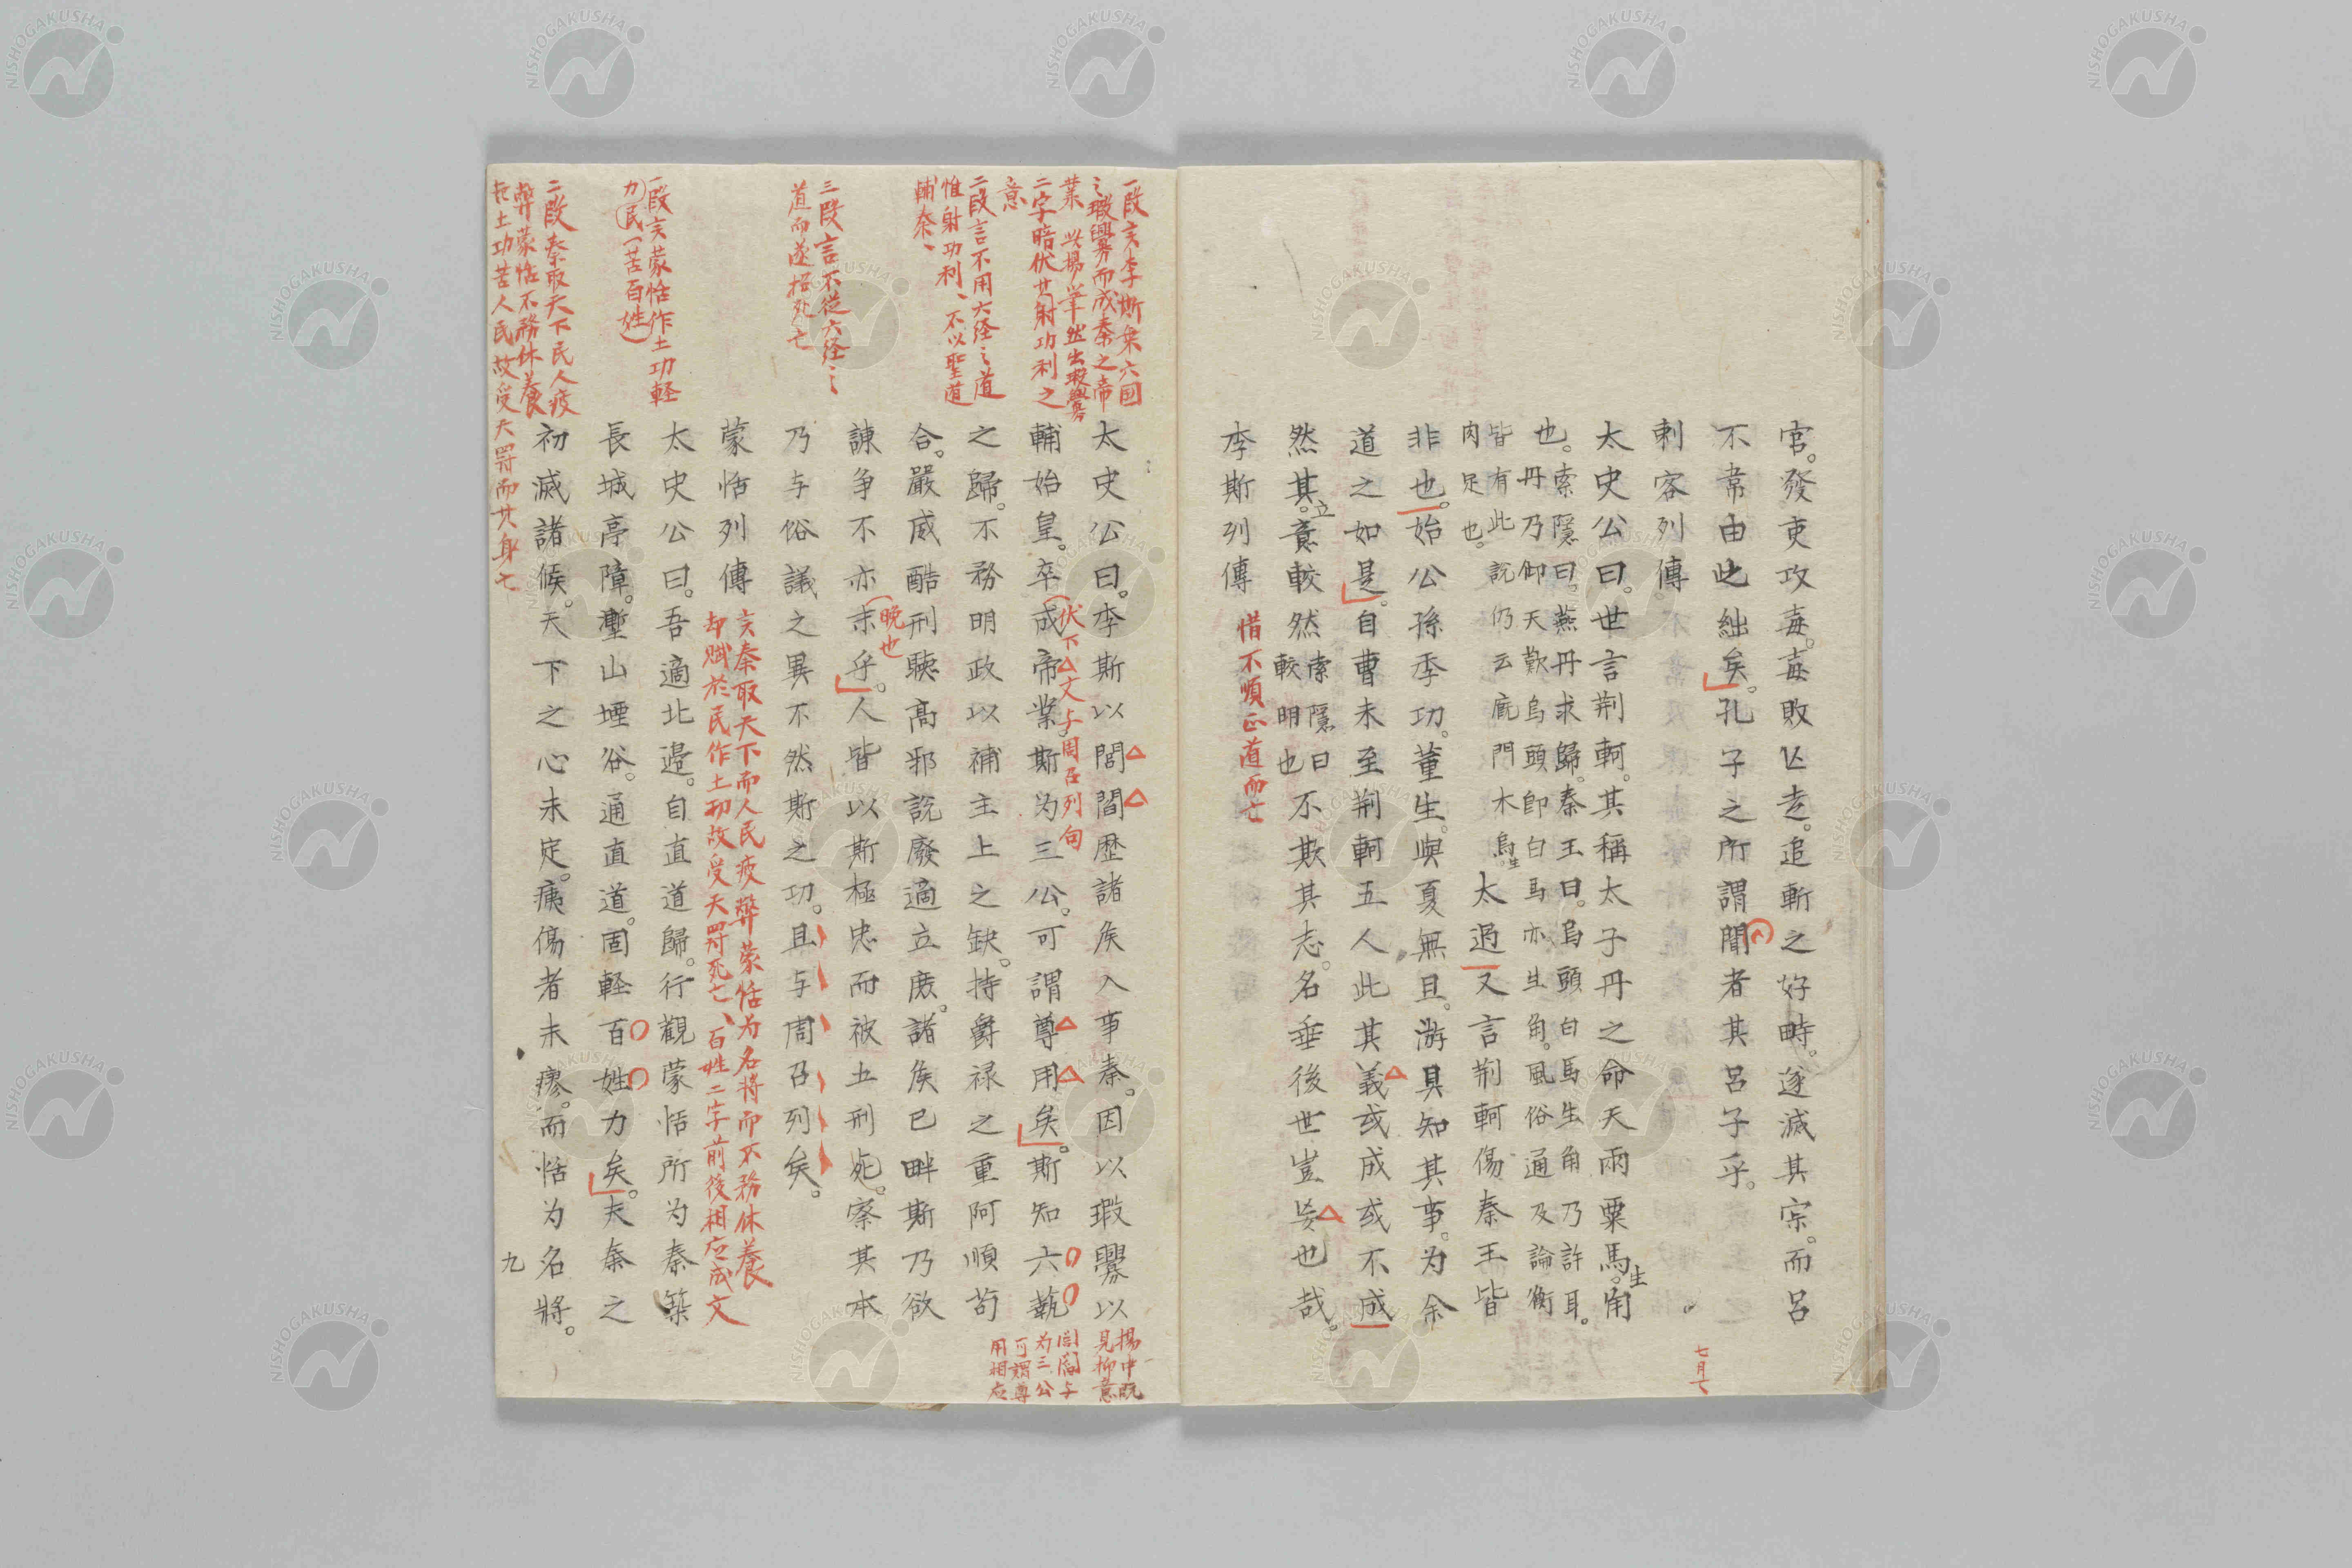 官。發吏攻毐。毐敗亡走。追斬之好畤。遂滅其宗。而呂
不韋由此絀矣。孔子之所謂聞者其呂子乎。
刺客列傳。
七月七
太史公曰。世言荊軻。其稱太子丹之命天雨粟馬。生角
也。索隱曰。燕丹求歸。秦王曰。烏頭白馬生角乃許耳。
丹乃仰天歎烏頭即白馬亦生角。風俗通及論衡
皆有此說仍云廐門木烏生
肉足也。
太過又言荊軻傷秦王皆
非也。始公孫季功。董生。與夏無且。游具知其事。为余
道之如是。自曹未至荊軻五人此其義或成或不成
然其。立意較然索隱曰
較明也不欺其志。名垂後世豈妄也哉。
李斯列傳
惜不順正道而亡
太史公曰。李斯以閭閻歴諸矦入事秦。因以瑕釁以
輔始皇。卒成帝業。斯为三公。可謂尊用矣。斯知六蓺
之歸。不务明政以補主上之缺。持爵禄之重阿順苟
合。嚴威酷刑聽高邪說廢適立庶。諸矦已畔斯乃欲
諌争不亦末乎。人皆以斯極忠而被五刑死。察其本
乃与俗議之異不然斯之功。且与周召列矣。
蒙恬列傳
太史公曰。吾適北邉。自直道歸。行觀蒙恬所为秦築
長城亭障。壍山堙谷。通直道。固軽百姓力矣。夫秦之
初滅諸候。天下之心未定。痍傷者未瘳。而恬为名將。
九
一段言李斯乗六国
之瑕釁而成秦之帝
業
二字暗伏其射功利之
意
二段言不用六経之道
惟射功利、不以聖道
輔秦、
三段言不従六経之
道而遂招死亡
一段言蒙恬作土功軽
力民(苦百姓)
二段秦取天下民人疲
弊蒙恬不務休養
土功苦人民故受天罸而其身亡
伏下△文与周召列句
晚也
言秦取天下而人民疲弊蒙恬为名将而不務休養
却賦於民作土功故受天罸死亡、百姓二字前後相应成文
揚中既
見抑意
閭閻与
为三公
可謂尊
用相应